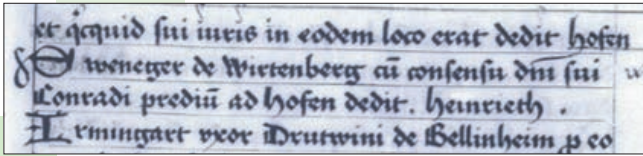 et qͥcquid sui iuris in eodem loco erat dedit hofen
Sweneger de Wirtenberg cū consensu dn̄i sui
Conradi prediū ad hofen dedit. heinrieth.
Irmingart vxor Drutwini de Bellinheim ꝑ eo